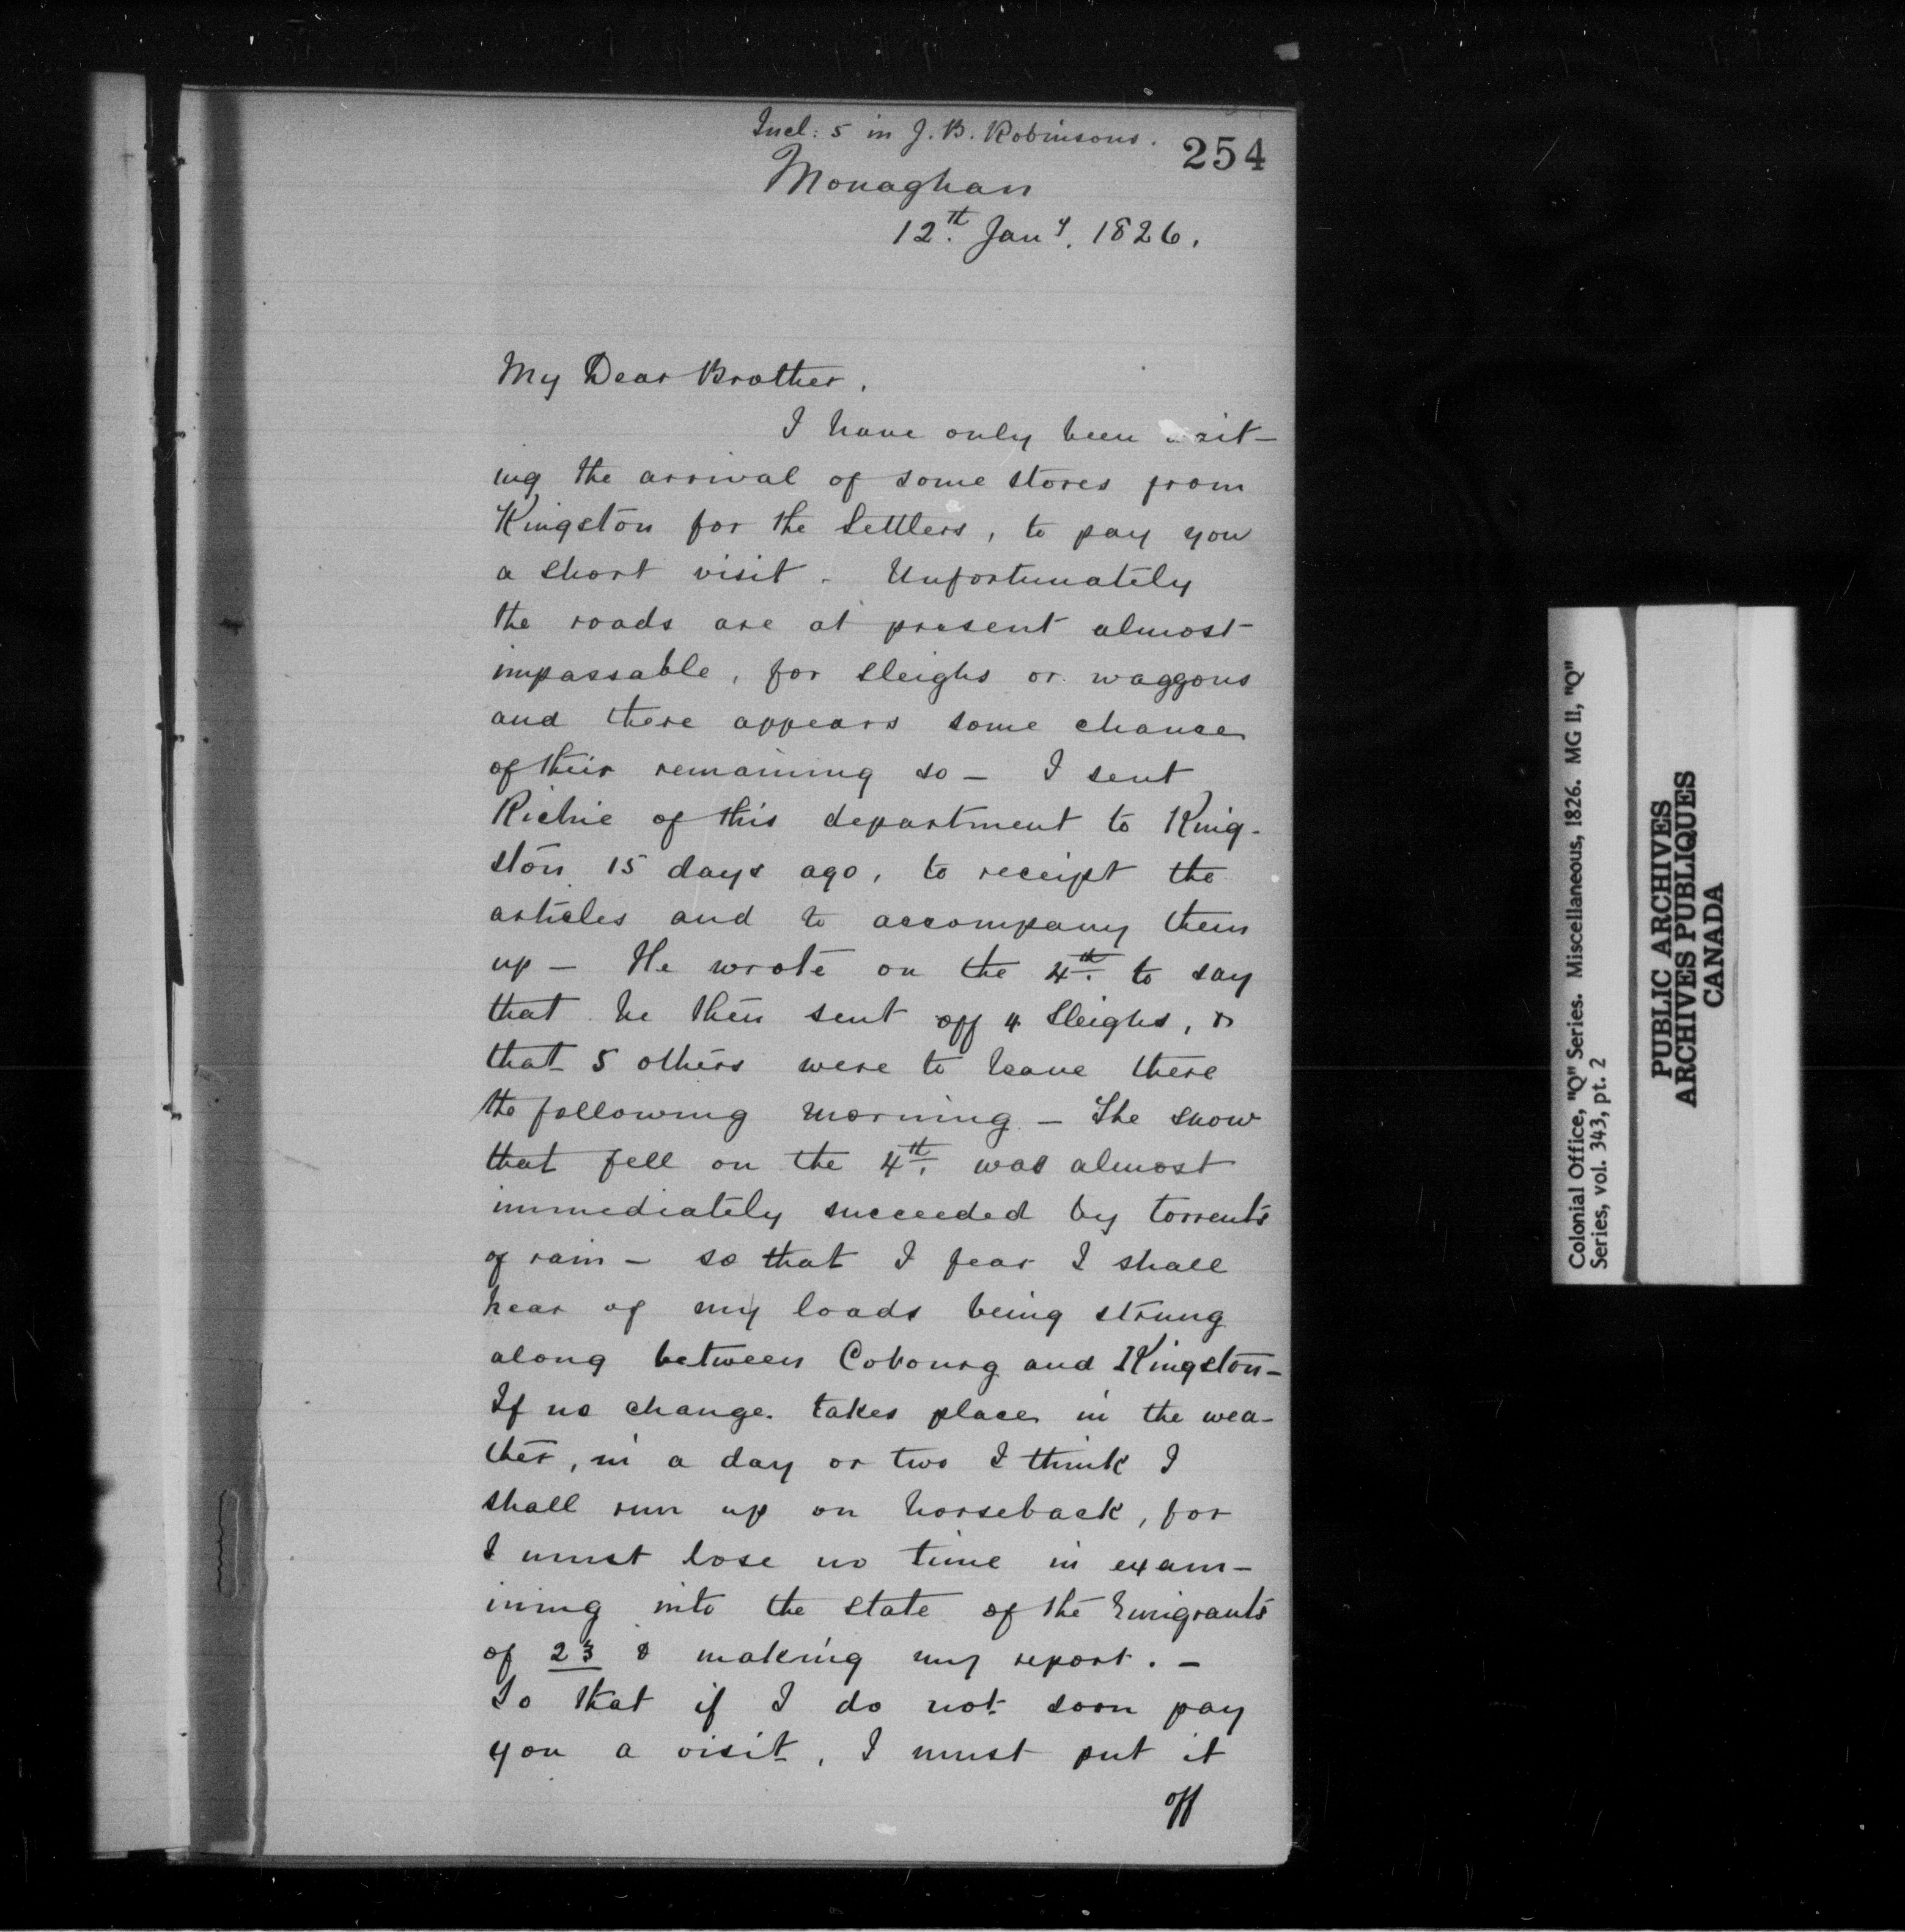 Incl: 5 in J. B. Robinsons.
254
Monaghan
12th. Jany. 1826.
My Dear Brother.
I have only been wait-
ing the arrival of some stores from
Kingston for the Settlers, to pay you
a short visit. Unfortunately
the roads are at present almost
impassable, for sleighs or waggons
and there appears some chance
of their remaining so – I sent
Richie of this department to King-
ston 15 days ago, to receipt the
articles and to accompany them
up – He wrote on the 4th. to say
that he then sent off 4 Sleighs, &
that 5 others were to leave there
the following morning – The snow
that fell on the 4th. was almost
immediately succeeded by torrents
of rain – so that I fear I shall
hear of my loads being strung
along between Cobourg and Kingston –
If no change takes place in the wea-
ther, in a day or two I think I
shall run up on horseback, for
I must lose no time in exam-
ining into the state of the Emigrants
of 23 & making my report. –
So that if I do not soon pay
you a visit, I must put it
off
Colonial Office, "Q" Series. Miscellaneous, 1826. MG 11, "Q"
Series, vol. 343, pt. 2
PUBLIC ARCHIVES
ARCHIVES PUBLIQUES
CANADA